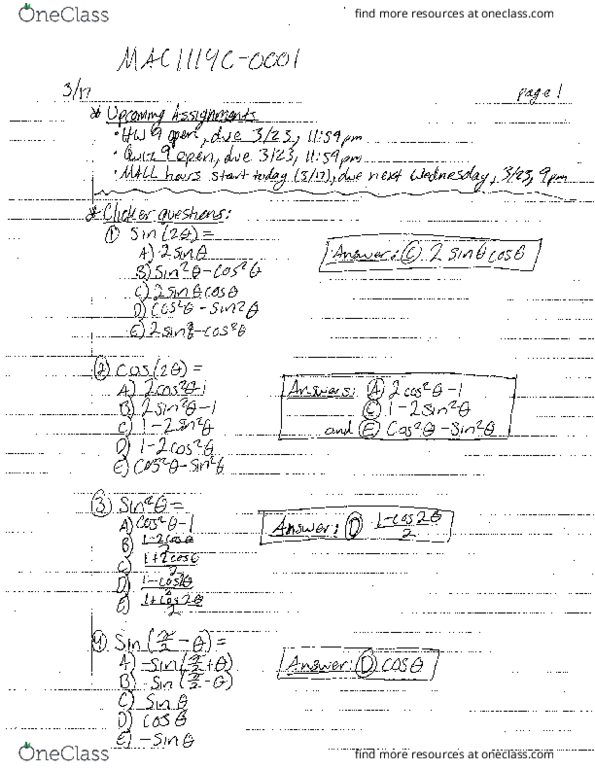 OneClass
find more resources at oneclass.com
MAC1114C-0001
3/17
page 1
* Upcoming Assignments
• HW 9 open, due 3/23, 11:59pm
• Quiz 9 open, due 3/23, 11:59pm
• MALL hours start today (3/17), due next Wednesday, 3/23, 9pm
* Clicker questions:
① Sin(2θ)=
A) 2sinθ
B) sin²θ-cos²θ
C) 2sinθcosθ
D) cos²θ-sin²θ
E) 2sin²θ-cos²θ
Answer: Ⓒ 2 sinθcosθ
② cos(2θ)=
A) 2cos²θ-1
B) 2sin²θ-1
C) 1-2sin²θ
D) 1-2cos²θ
E) cos²θ-sin²θ
Answers: Ⓐ 2cos²θ-1
Ⓒ 1-2sin²θ
and Ⓔ Cos²θ-Sin²θ
③ Sin²θ=
A) cos²θ-1
B) (1-2cosθ)/2
C) (1+2cosθ)/2
D) (1-cos2θ)/2
E) (1+cos2θ)/2
Answer: Ⓓ (1-cos2θ)/2
④ Sin(π/2-θ)=
A) -sin(π/2+θ)
B) -sin(π/2-θ)
C) Sinθ
D) cosθ
E) -Sinθ
Answer: Ⓓ cosθ
OneClass
find more resources at oneclass.com